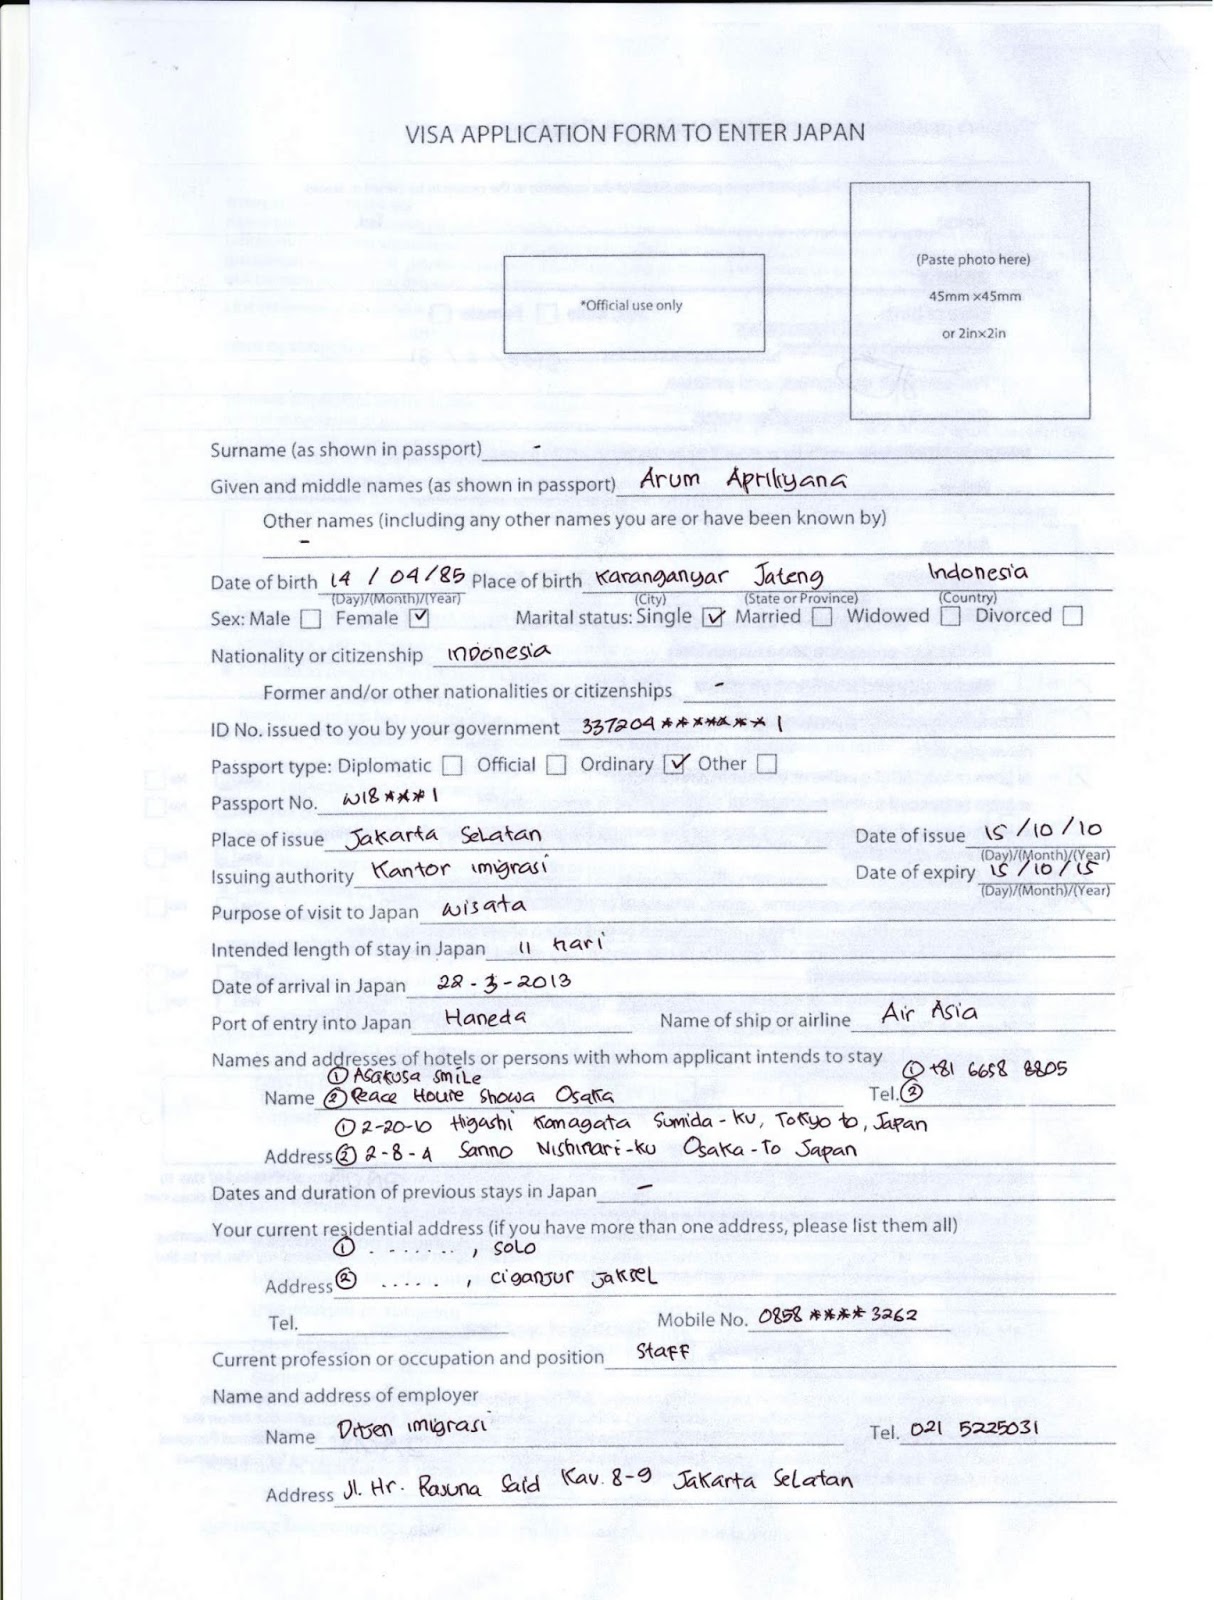 VISA APPLICATION FORM TO ENTER JAPAN
(Paste photo here)
45mm ×45mm
or 2in×2in
*Official use only
Surname (as shown in passport) -
Given and middle names (as shown in passport) Arum Apriliyana
Other names (including any other names you are or have been known by)
-
Date of birth 14 / 04 / 85 Place of birth Karanganyar Jateng Indonesia
(Day)/(Month)/(Year) (City) (State or Province) (Country)
Sex: Male Female Marital status: Single Married Widowed Divorced
Nationality or citizenship Indonesia
Former and/or other nationalities or citizenships -
ID No. issued to you by your government 337204*******1
Passport type: Diplomatic Official Ordinary Other
Passport No. W18***1
Place of issue Jakarta Selatan Date of issue 15 / 10 / 10
(Day)/(Month)/(Year)
Issuing authority Kantor imigrasi Date of expiry 15 / 10 / 15
(Day)/(Month)/(Year)
Purpose of visit to Japan wisata
Intended length of stay in Japan 11 hari
Date of arrival in Japan 22 - 3 - 2013
Port of entry into Japan Haneda Name of ship or airline Air Asia
Names and addresses of hotels or persons with whom applicant intends to stay
① Asakusa smile ① +81 6658 8805
Name ② Peace House Showa Osaka Tel. ②
① 2-20-10 Higashi Komagata Sumida - ku, Tokyo to, Japan
Address ② 2-8-4 Sanno Nishinari-ku Osaka - To Japan
Dates and duration of previous stays in Japan -
Your current residential address (if you have more than one address, please list them all)
① . . . . . . . , SOLO
Address ② . . . . . , ciganjur jaksel
Tel. Mobile No. 0858 **** 3262
Current profession or occupation and position Staff
Name and address of employer
Name Ditjen imigrasi Tel. 021 5225031
Address Jl. Hr. Rasuna Said Kav. 8-9 Jakarta Selatan